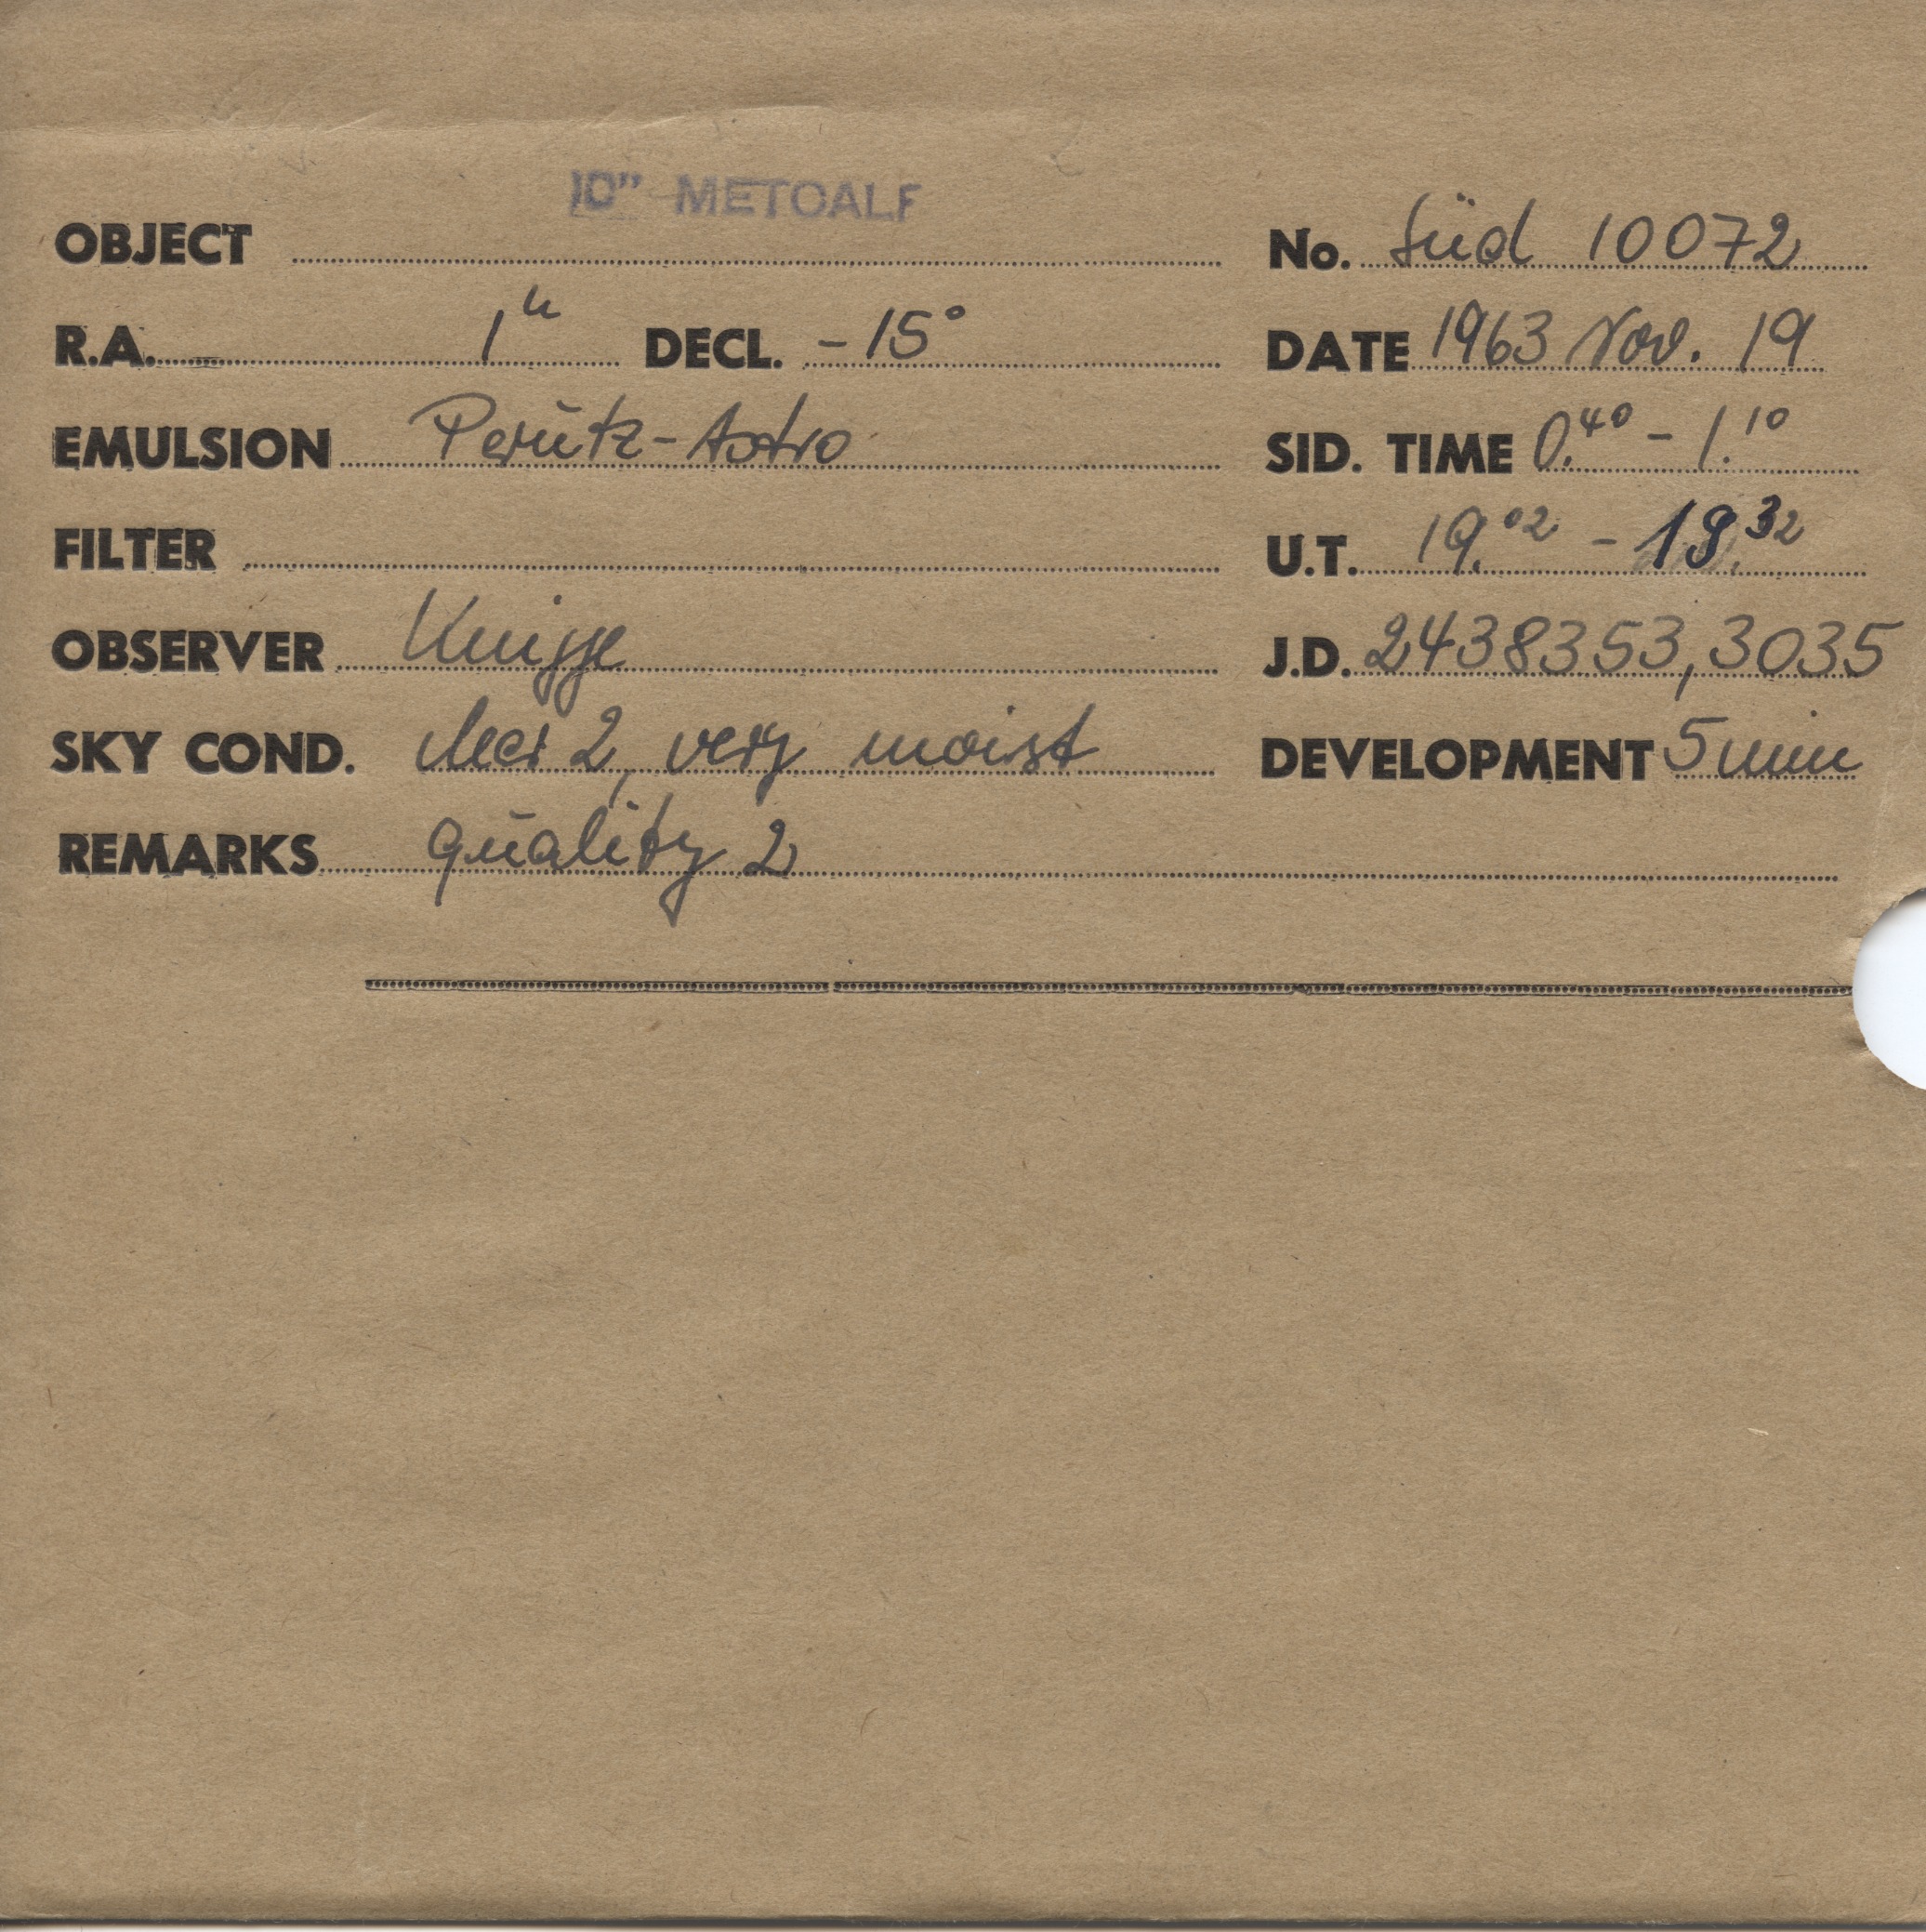 10" METCALF
OBJECT No. Süd 10072
R.A. 1h DECL. -15° DATE 1963 Nov. 19
EMULSION Perutz-Astro SID. TIME 0.40 - 1.10
FILTER U.T. 19.02 - 19.32
OBSERVER Knigge J.D. 2438353,3035
SKY COND. 2, very moist DEVELOPMENT 5 min
REMARKS quality 2